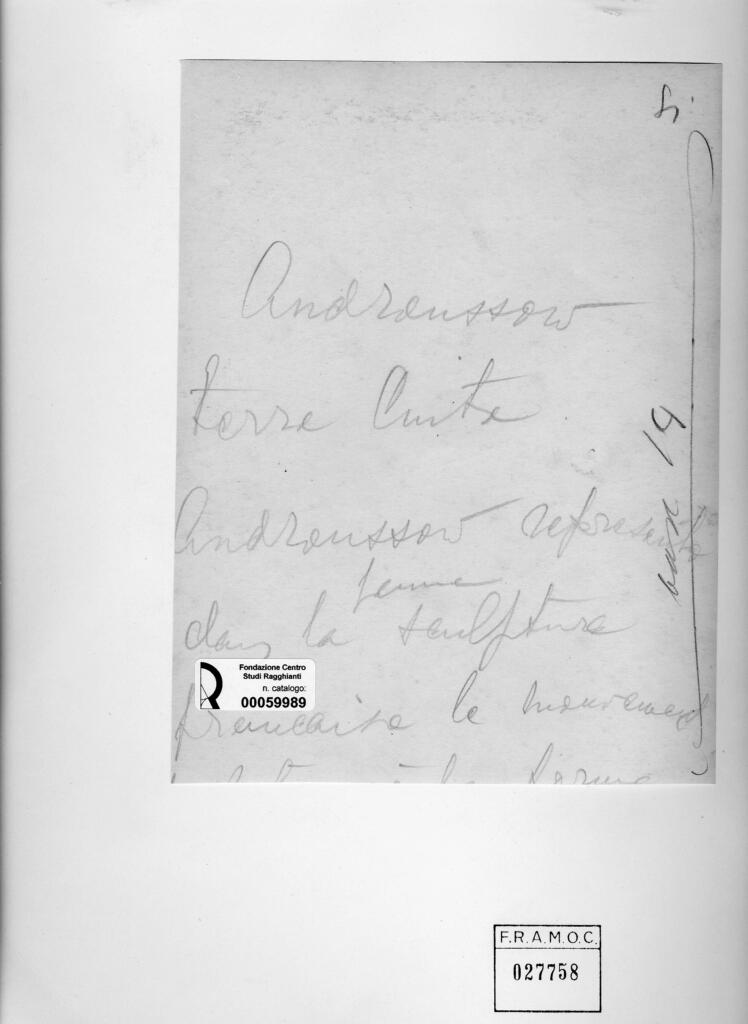 Si
Androussow
terre Cuite
Androussow represente
jeune
dans la sculpture
française le mouvement
Fondazione Centro
Studi Ragghianti
n. catalogo:
00059989
F.R.A.M.O.C.
027758